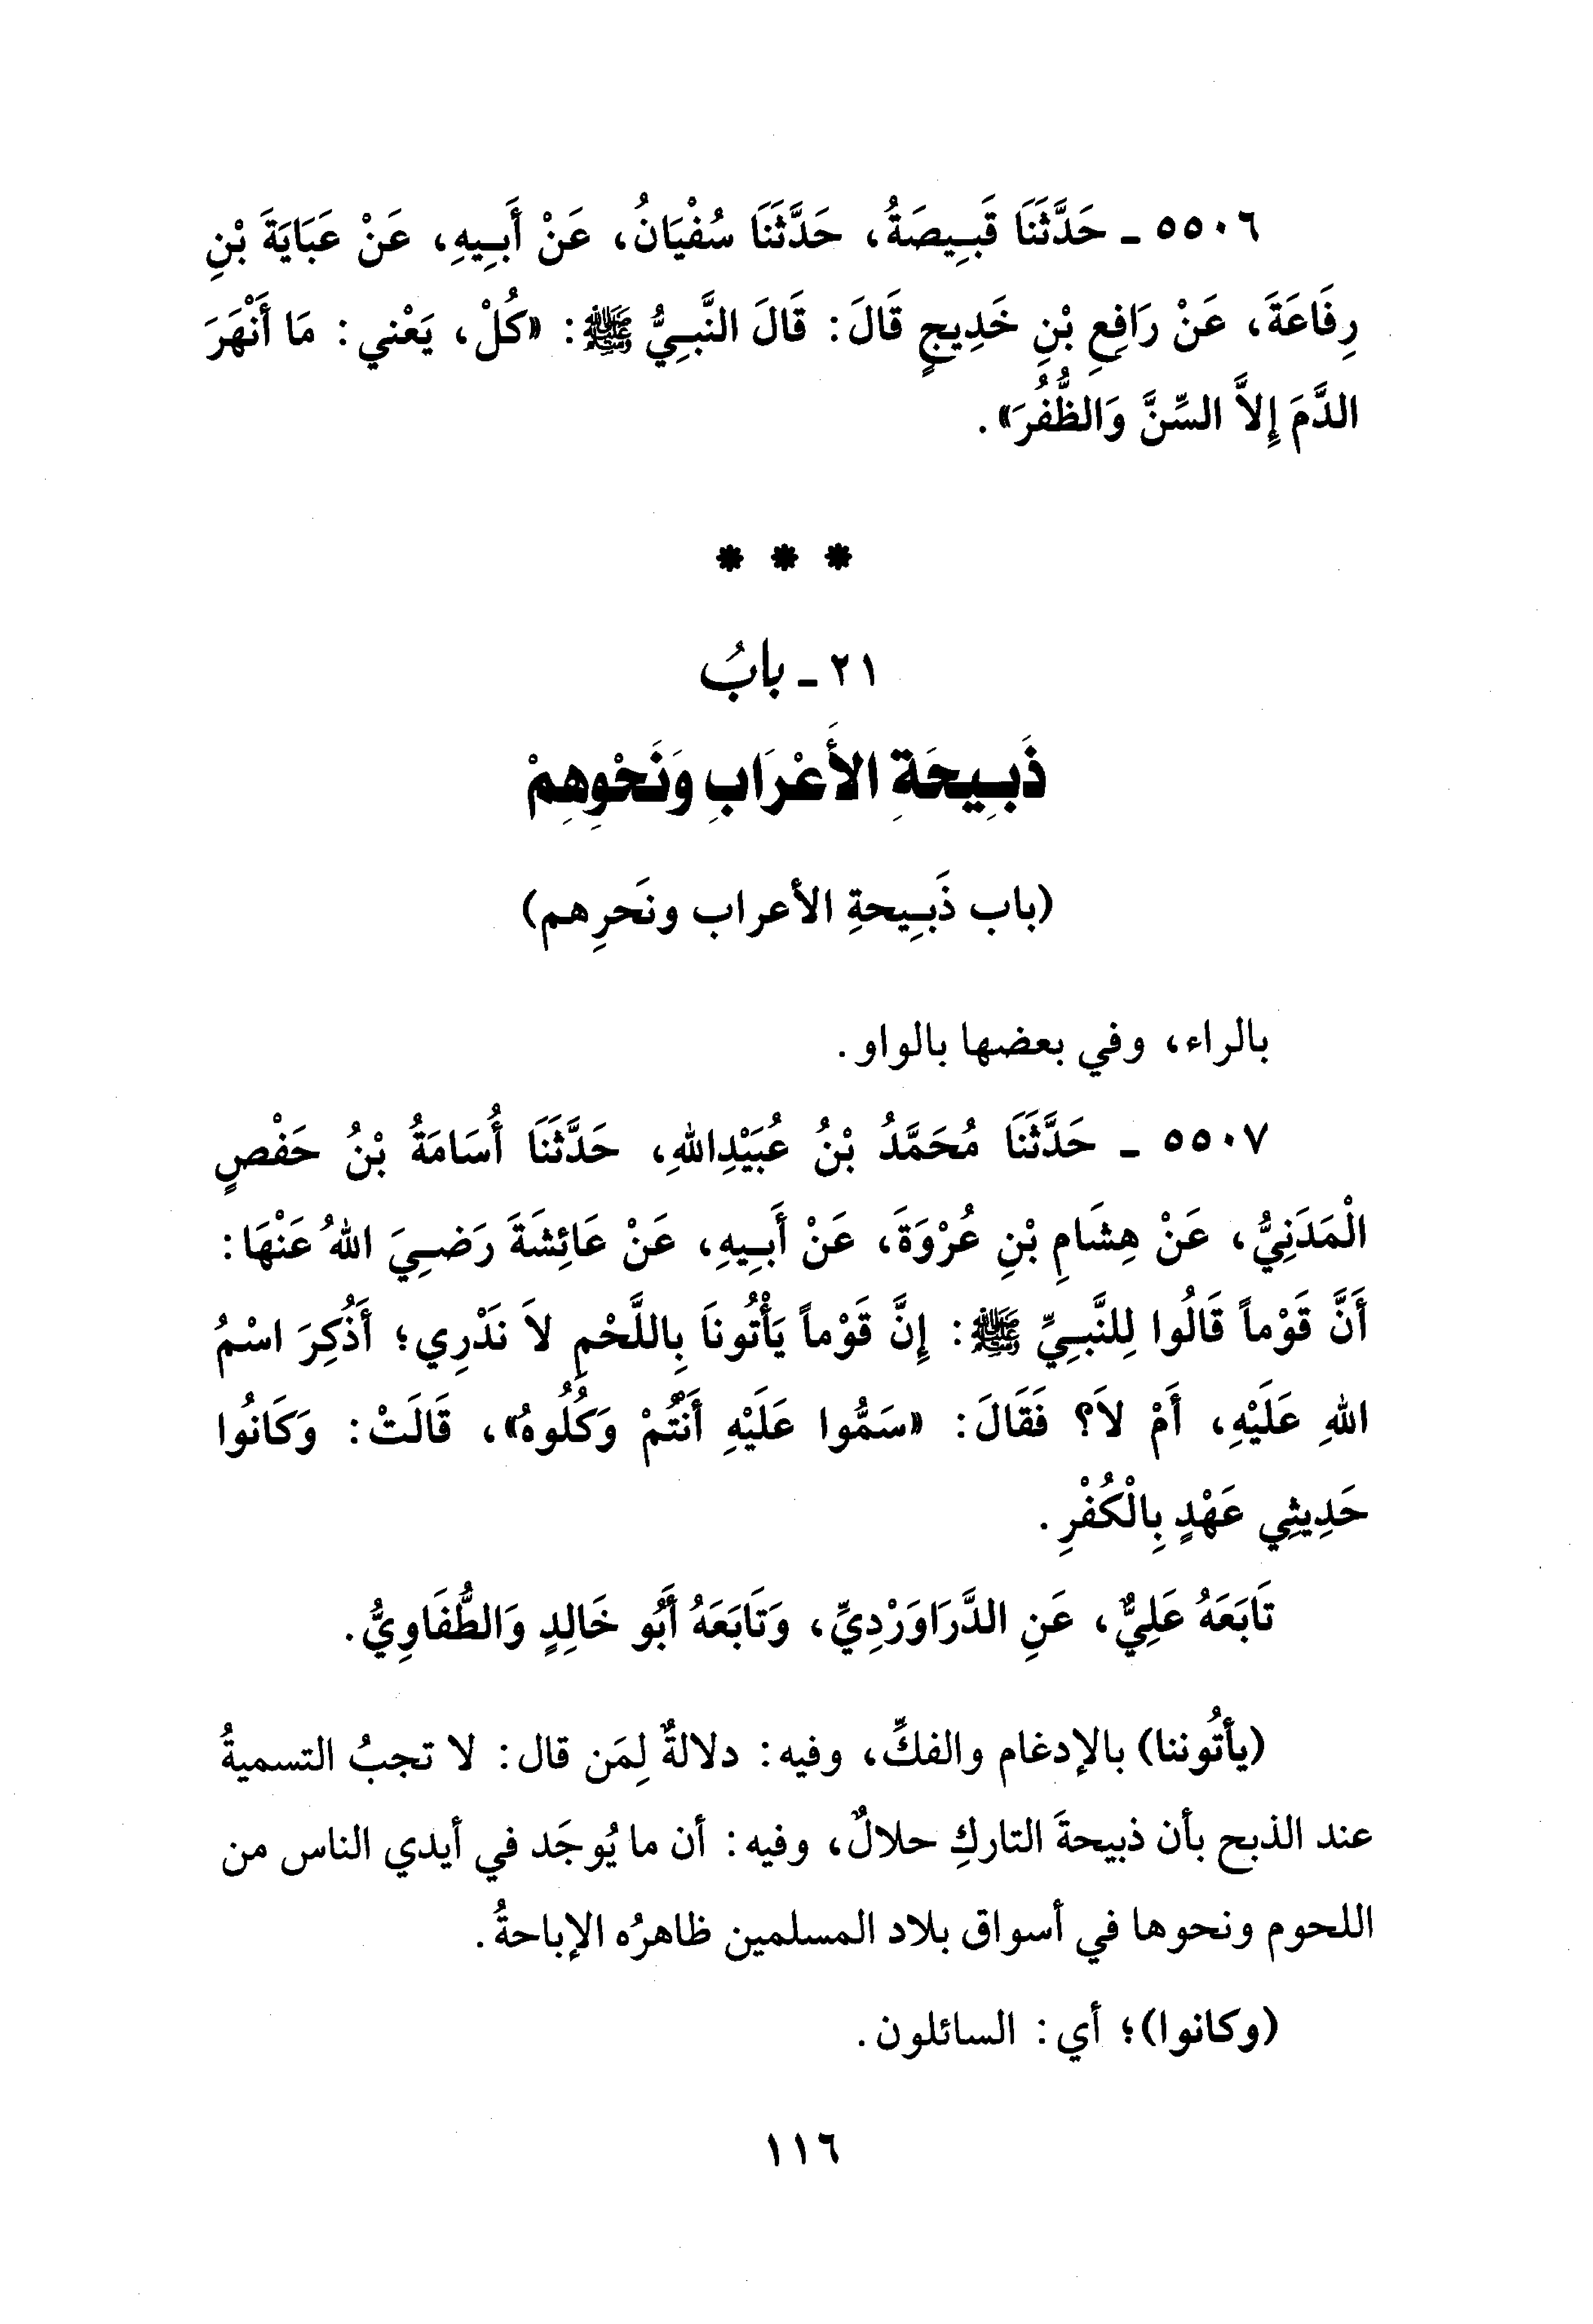 ٥٥٠٦ - حَدَّثَنَا قَبِيصَةُ، حَدَّثَنَا سُفْيَانُ، عَنْ أَبِيهِ، عَنْ عَبَايَةَ بْنِ
رِفَاعَةَ، عَنْ رَافِعِ بْنِ خَدِيجٍ قَالَ: قَالَ النَّبِيُّ ﷺ: «كُلْ، يَعْني: مَا أَنْهَرَ
الدَّمَ إِلاَّ السِّنَّ وَالظُّفُرَ».
* * *
٢١ - بابُ
ذَبِيحَةِ الأَعْرَابِ وَنَحْوِهِمْ
(باب ذَبِيحةِ الأعراب ونَحرِهم)
بالراء، وفي بعضها بالواو.
٥٥٠٧ - حَدَّثَنَا مُحَمَّدُ بْنُ عُبَيْدِاللهِ، حَدَّثَنَا أُسَامَةُ بْنُ حَفْصٍ
الْمَدَنِيُّ، عَنْ هِشَامِ بْنِ عُرْوَةَ، عَنْ أَبِيهِ، عَنْ عَائِشَةَ رَضِيَ اللهُ عَنْهَا:
أَنَّ قَوْماً قَالُوا لِلنَّبِيِّ ﷺ: إِنَّ قَوْماً يَأْتُونَا بِاللَّحْمِ لاَ نَدْرِي؛ أَذُكِرَ اسْمُ
اللهِ عَلَيْهِ، أَمْ لاَ؟ فَقَالَ: «سَمُّوا عَلَيْهِ أَنْتُمْ وَكُلُوهُ»، قَالَتْ: وَكَانُوا
حَدِيثِي عَهْدٍ بِالْكُفْرِ.
تَابَعَهُ عَلِيٌّ، عَنِ الدَّرَاوَرْدِيِّ، وَتَابَعَهُ أَبُو خَالِدٍ وَالطُّفَاوِيُّ.
(يأتُوننا) بالإدغام والفكِّ، وفيه: دلالةٌ لِمَن قال: لا تجبُ التسميةُ
عند الذبح بأن ذبيحةَ التاركِ حلالٌ، وفيه: أن ما يُوجَد في أيدي الناس من
اللحوم ونحوها في أسواق بلاد المسلمين ظاهرُه الإباحةُ.
(وكانوا)؛ أي: السائلون.
١١٦